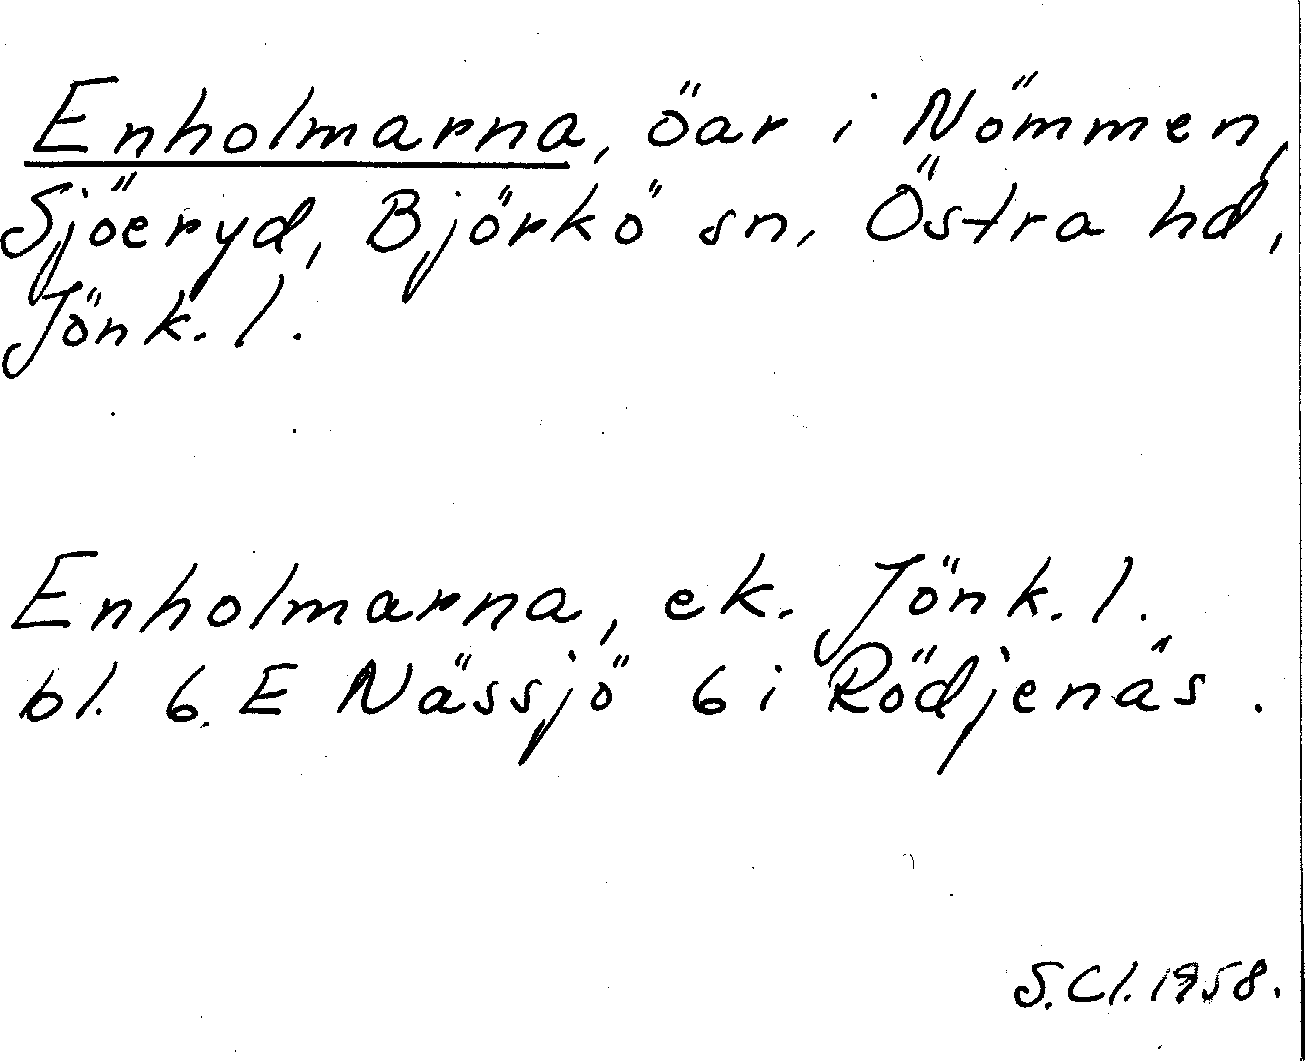 Enholmarna, öar i Nömmen,
Sjöeryd, Björkö sn, Östra hd,
Jönk. l.
Enholmarna, ek. Jönk. l.
bl. 6. E Nässjö 6 i Rödjenäs.
S. Cl. 1958.